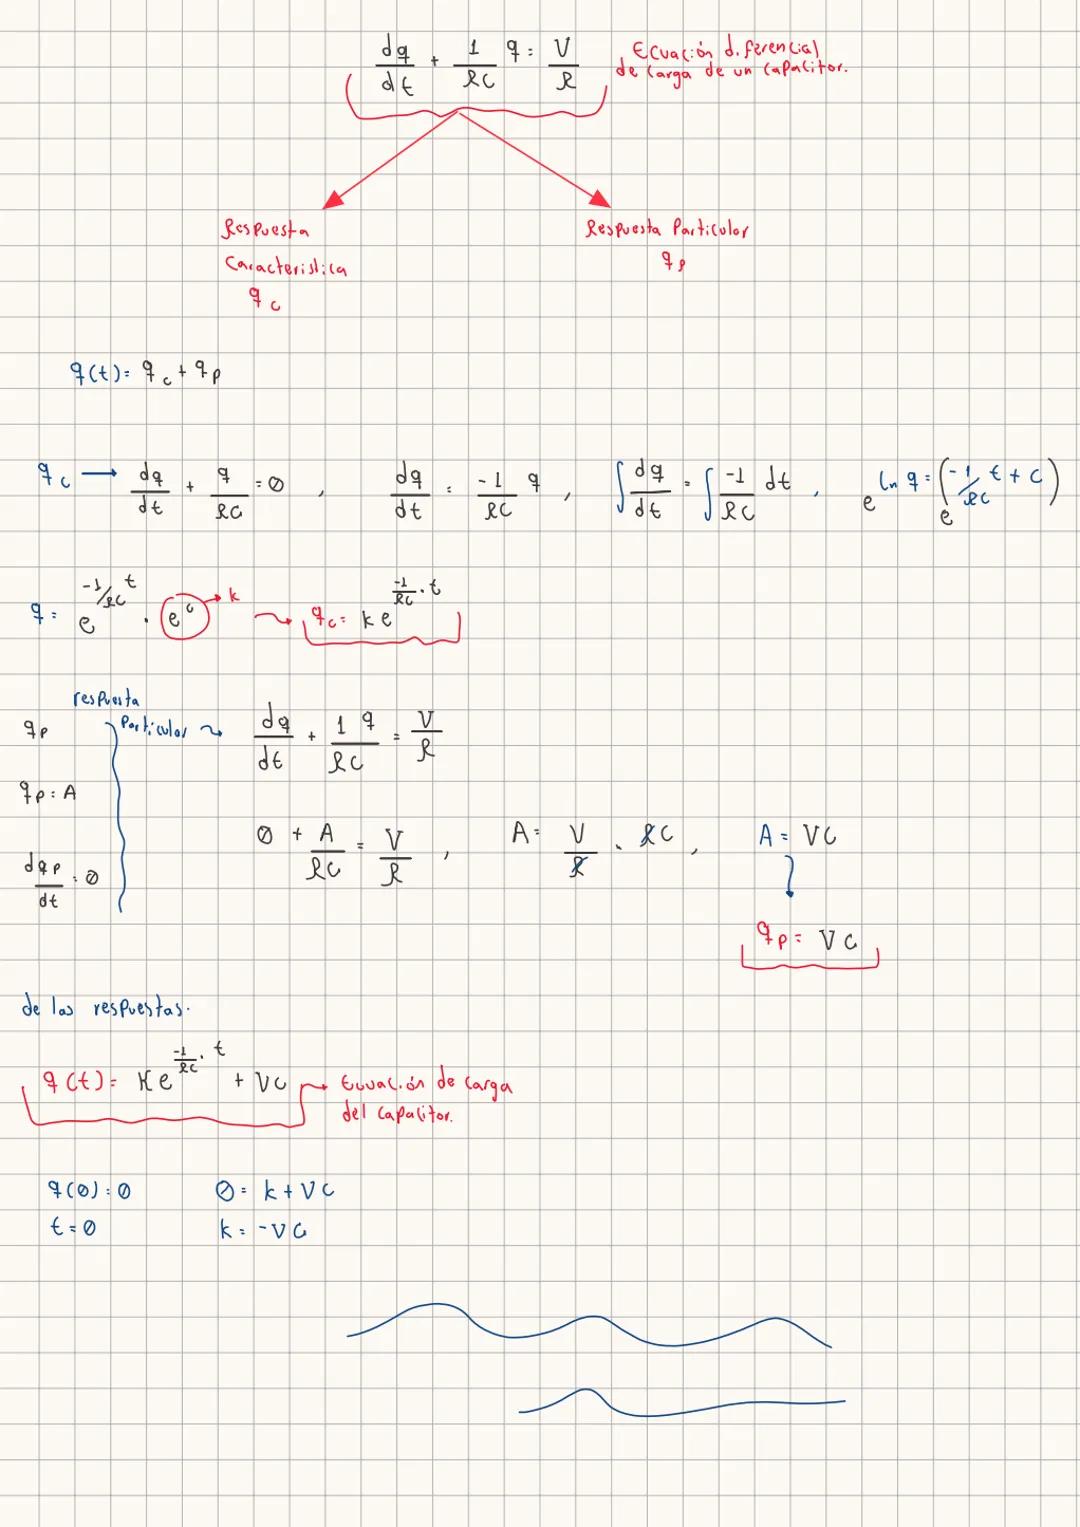 dq/dt + 1/RC q = V/R Ecuación diferencial
de carga de un capacitor.
Respuesta Respuesta Particular
Caracteristica qp
qc
q(t) = qc + qp
qc → dq/dt + q/RC = 0 , dq/dt = -1/RC q , ∫ dq/dt = ∫ -1/RC dt , e^ln q = e^(-1/RC t + c)
q = e^-1/RC t · e^c → k qc = k e^-1/RC · t
respuesta
qp Particular dq/dt + 1/RC q = V/R
qp = A
0 + A/RC = V/R , A = V/R · RC , A = VC
dqp/dt = 0
qp = VC
de las respuestas.
q(t) = Ke^-1/RC · t + VC → Ecuación de carga
del capacitor.
q(0) = 0 0 = k + VC
t = 0 k = -VC